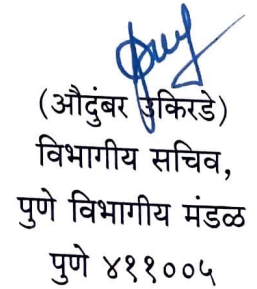 (औदुंबर उकिरडे)
विभागीय सचिव,
पुणे विभागीय मंडळ
पुणे ४११००५